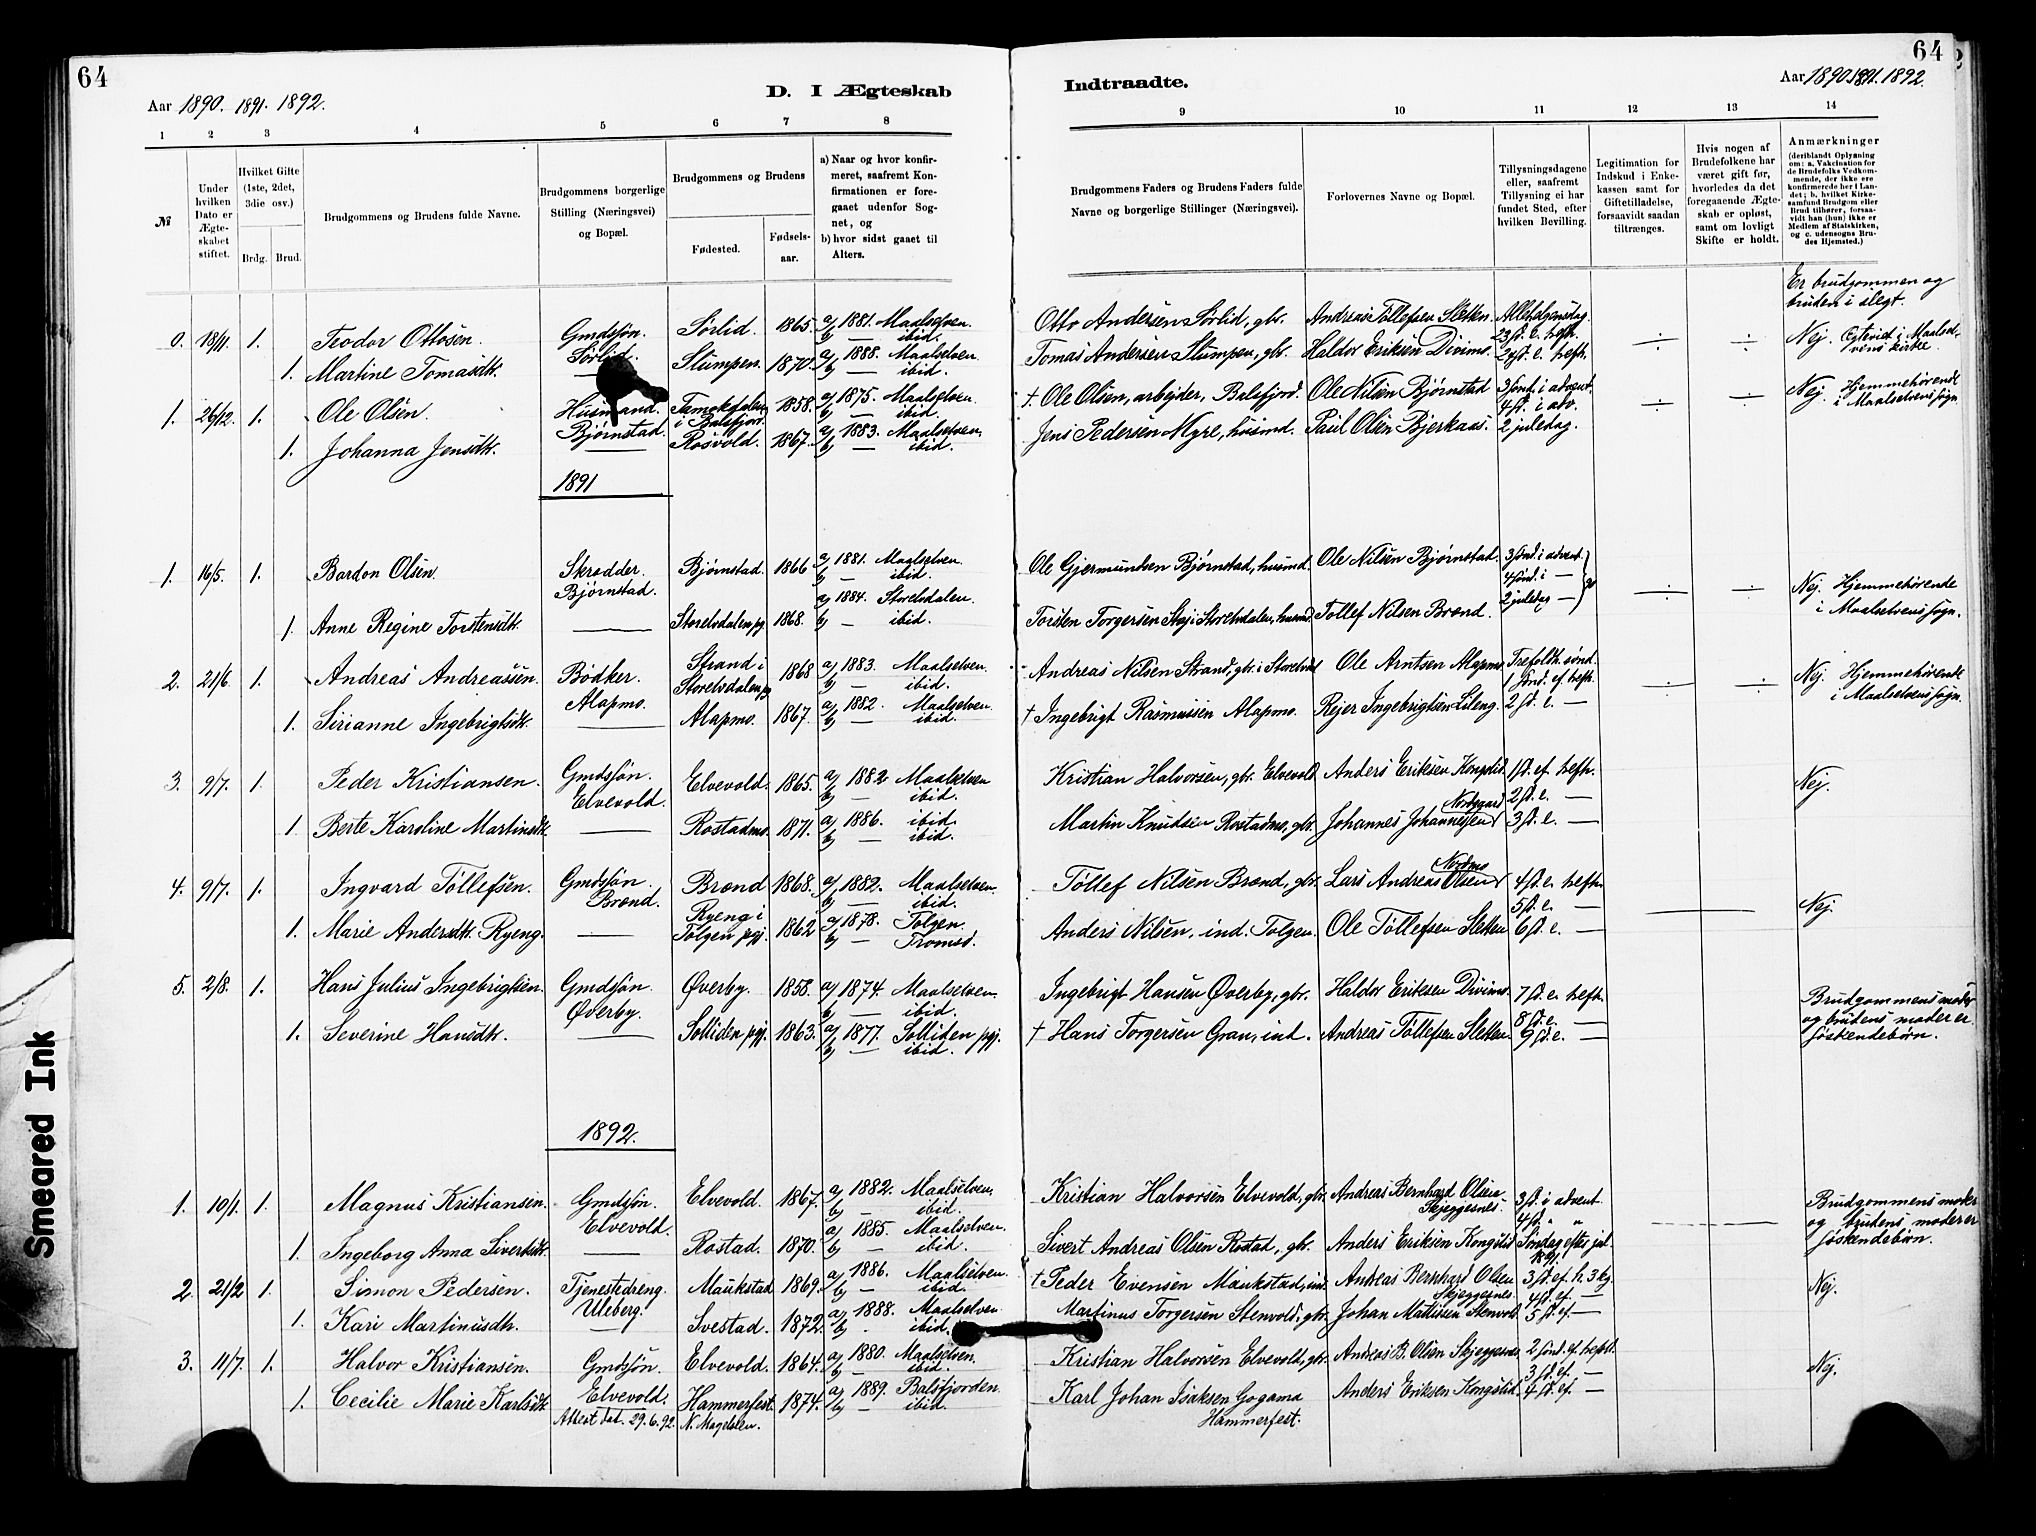 64
64
Aar 1890. 1891. 1892.
D. I Ægteskab
Indtraadte.
Aar 1890 1891. 1892.
1 2 3 4 5 6 7 8 9 10 11 12 13 14
№
Under hvilken Dato er Ægteskabet stiftet.
Hvilket Gifte (1ste, 2det, 3die osv.)
Brdg. Brud.
Brudgommens og Brudens fulde Navne.
Brudgommens borgerlige Stilling (Næringsvei) og Bopæl.
Brudgommens og Brudens
Fødested.
Fødselsaar.
a) Naar og hvor konfirmeret, saafremt Konfirmationen er foregaaet udenfor Sognet, og
b) hvor sidst gaaet til Alters.
Brudgommens Faders og Brudens Faders fulde Navne og borgerlige Stillinger (Næringsvei).
Forlovernes Navne og Bopæl.
Tillysningsdagene eller, saafremt Tillysning ei har fundet Sted, efter hvilken Bevilling.
Legitimation for Indskud i Enkekassen samt for Giftetilladelse, forsaavidt saadan tiltrænges.
Hvis nogen af Brudefolkene har været gift før, hvorledes da det foregaaende Ægteskab er opløst, samt om lovligt Skifte er holdt.
Anmærkninger
(deriblandt Oplysning om: a. Vakcination for de Brudefolks Vedkommende, der ikke ere konfirmerede her i Landet; b. hvilket Kirkesamfund Brudgom eller Brud tilhører, forsaavidt han (hun) ikke er Medlem af Statskirken, og c. udensogns Brudes Hjemsted.)
Er brudgommen og bruden i slegt.
0. 18/11. 1. Teodor Ottosen. Gmdsøn. Sørlid. Sørlid. 1865. a) 1881. Maalselven. b) — ibid. Otto Andersen Sørlid, gbr. Andreas Tollefsen Sletten. Allehelgensdag. 23 sd. e. trefth. ÷ ÷ Nej. Egteviet i Maalselvens kirke
1. Martine Tomasdtr. — Stumpen. 1870. a) 1888. Maalselven. b) — ibid. Tomas Andersen Stumpen, gbr. Haldor Eriksen Divimo. 24 sd. e. trefth.
1. 26/12. 1. Ole Olsen. Husmand. Bjørnstad. Tamokdalen i Balsfjord. 1858. a) 1875. Maalselven. b) — ibid. † Ole Olsen, arbejder, Balsfjord. Ole Nilsen Bjørnstad 3 sønd. i advent. 4 sd. i adv. ÷ ÷ Nej. Hjemmehørende i Maalselvens sogn.
1. Johanna Jensdtr. — Rosvold. 1867. a) 1883. Maalselven. b) — ibid. Jens Pedersen Myre, husmd. Paul Olsen Bjerkaas. 2 juledag.
1891
1. 16/5. 1. Bardon Olsen. Skrædder. Bjørnstad. Bjørnstad. 1866 a) 1881. Maalselven. b) — ibid. Ole Gjermundsen Bjørnstad, husmd. Ole Nilsen Bjørnstad. 3 sønd. i advent. 4 sønd. i — 2 juledag — } 90 ÷ ÷ Nej. Hjemmehørende i Maalselvens sogn.
1. Anne Regine Torstensdtr. — Storelvdalen pgj. 1868. a) 1884. Storelvdalen. b) — ibid. Torsten Torgersen Staj i Storelvdalen, husmd. Tollef Nilsen Brænd.
2. 21/6. 1. Andreas Andreassen. Bødker. Alapmo. Strand i Storelvdalen pgj 1868 a) 1883. Maalselven. b) — ibid. Andreas Nilsen Strand, gbr. i Storelvd. Ole Arntsen Alapmo. Trefoldh. sønd. 1 sønd. ef. trefth. ÷ ÷ Nej. Hjemmehørende i Maalselvens sogn.
1. Sirianne Ingebrigtsdtr. — Alapmo. 1867. a) 1882. Maalselven. b) — ibid. † Ingebrigt Rasmussen Alapmo. Rejer Ingebrigtsen Lileng. 2 sd. e. —
3. 9/7. 1. Peder Kristiansen. Gmdsøn. Elvevold. Elvevold. 1865. a) 1882 Maalselven b) — ibid. Kristian Halvorsen, gbr. Elvevold. Anders Eriksen Kongslid. 1 sd. ef. trefth. 2 sd. e. — Nej.
1. Berte Karoline Martinsdtr. — Rostadmo. 1871. a) 1886. ibid. b) — ibid. Martin Knudsen Rostadmo, gbr. Johannes Johannessen Nordgaard 3 sd. e. —
4. 9/7. 1. Ingvard Tollefsen. Gmdsøn. Brænd. Brænd 1868. a) 1882. Maalselven. b) — ibid. Tollef Nilsen Brænd, gbr. Lars Andreas Olsen Nordmo 4 sd. e. trefth. 5 sd. e. — Nej.
1. Marie Andersdtr. Ryeng. — Ryeng i Tolgen pgj. 1862 a) 1878. Tolgen. b) — Tromsø. Anders Nilsen, ind. Tolgen. Ole Tollefsen Sletten 6 sd. e. —
5. 2/8. 1. Hans Julius Ingebrigtsen. Gmdsøn. Øverby. Øverby. 1858. a) 1874. Maalselven. b) — ibid. Ingebrigt Hansen Øverby, gbr. Haldor Eriksen Divimo. 7 sd. e. trefth. 8 sd. e. — Brudgommens moder og brudens moder er søskendebørn.
1. Severine Hansdtr. — Solliden pgj. 1863. a) 1877. Solliden pgj. b) — ibid. † Hans Torgersen Gran, ind. Andreas Tollefsen Sletten. 9 sd. e. —
1892.
1. 10/1. 1. Magnus Kristiansen. Gmdsøn. Elvevold. Elvevold. 1867. a) 1882. Maalselven. b) — ibid. Kristian Halvorsen Elvevold, gbr. Andreas Bernhard Olsen Skjeggesnes. 3 sd. i advent 4 sd. " " Brudgommens moder og brudens moder er søskendebørn.
1. Ingeborg Anna Sivertsdtr. — Rostad. 1870. a) 1885. Maalselven. b) — ibid. Sivert Andreas Olsen Rostad, gbr. Anders Eriksen Kongslid. Søndag efter jul
2. 21/2 1. Simon Pedersen. Tjenestedreng. Uleberg. Maukstad 1869. a) 1886. Maalselven. b) — ibid. † Peder Evensen Maukstad, ind. Andreas Bernhard Olsen Skjeggesnes. 3 sd. ef. h. 3 kg. 4 sd. ef. — Nej.
1. Kari Martinusdtr. — Svestad. 1872. a) 1888. Maalselven. b) - ibid. Martinus Torgersen Stenvold, gbr. Johan Mattissen Stenvold. 5 sd. ef. —
3. 11/7. 1. Halvor Kristiansen. Gmdsøn. Elvevold. Elvevold. 1864. a) 1880. Maalselven. b) — ibid. Kristian Halvorsen Elvevold, gbr. Andreas B. Olsen Skjeggesnes 2 sønd. ef. trefth. 3 sd. ef. — Nej.
1. Cecilie Marie Karlsdtr. Attest dat. 29.6.92. Hammerfest. N. Magdalen. 1874. a) 1889. Balsfjorden. b) — ibid. Karl Johan Isaksen Gogama Hammerfest. Anders Eriksen Kongslid. 4 sd. ef. —
Smeared Ink